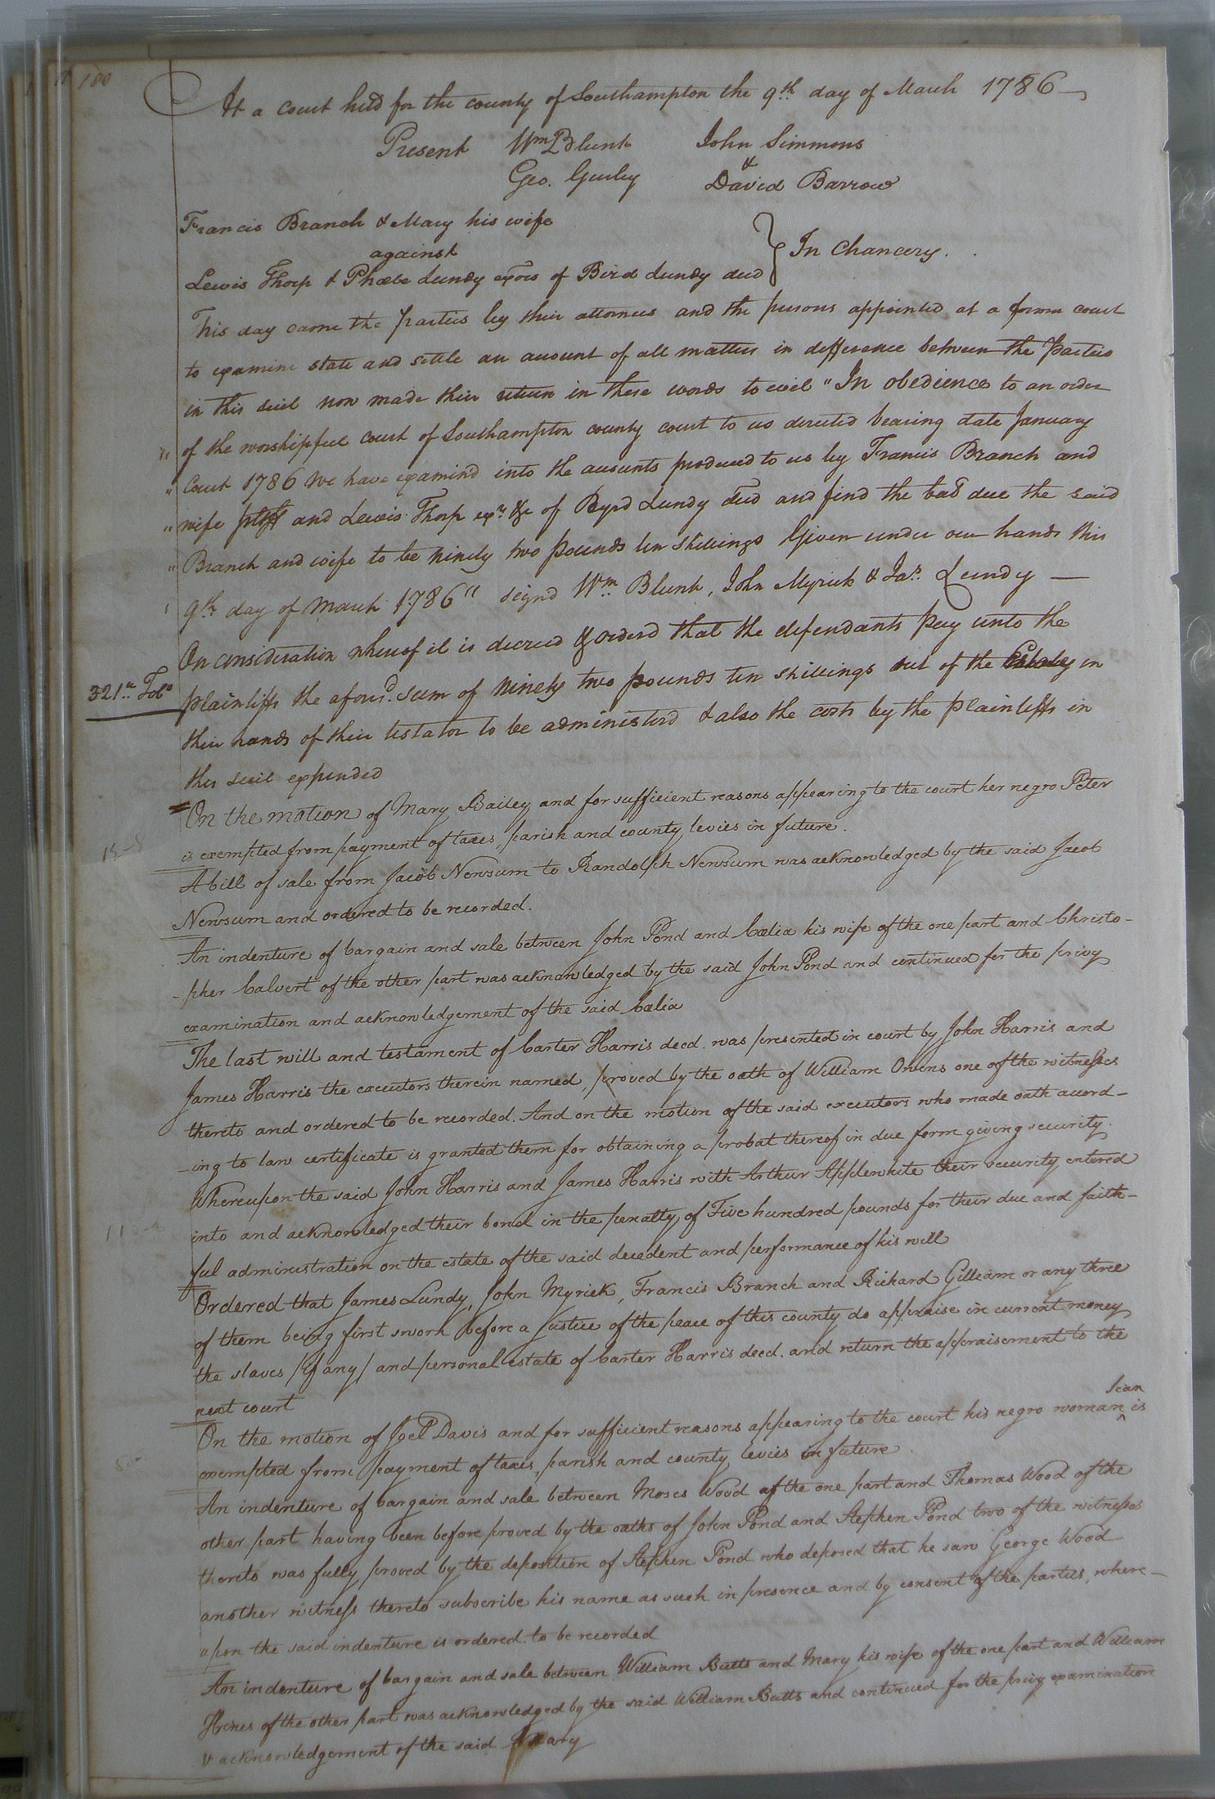 180
At a court held for the county of Southampton the 9th day of March 1786
Present Wm Blunt John Simmons
&
Geo. Gurley David Barrow
Francis Branch & Mary his wife
against
In Chancery.
Lewis Thorp & Phœbe Lundy exors of Bird Lundy decd
This day came the parties by their attornies and the persons appointed at a former court
to examine state and settle an account of all matters in difference between the parties
in this suit now made their return in these words to wit "In obedience to an order
" of the worshipful court of Southampton county court to us directed bearing date January
" Court 1786 We have examind into the accounts produced to us by Francis Branch and
" wife pltffs and Lewis Thorp exr &c of Byrd Lundy decd and find the bale due the said
" Branch and wife to be ninety two pounds ten shillings Given under our hands this
' 9th day of March 1786" signd Wm Blunt, John Myrick & Jas. Lundy —
On consideration whereof it is decreed & orderd that the defendants pay unto the
321lb Tobo
plaintiffs the aforesd sum of ninety two pounds ten shillings out of the Estate in
their hands of their testator to be administerd & also the costs by the plaintiffs in
this suit expended
On the motion of Mary Bailey and for sufficient reasons appearing to the court her negro Peter
is exempted from payment of taxes, parish and county levies in future.
A bill of sale from Jacob Newsum to Randolph Newsum was acknowledged by the said Jacob
Newsum and ordered to be recorded.
An indenture of bargain and sale between John Pond and Cælia his wife of the one part and Christo-
-pher Calvert of the other part was acknowledged by the said John Pond and continued for the privy
examination and acknowledgement of the said Cælia
The last will and testament of Carter Harris decd. was presented in court by John Harris and
James Harris the executors therein named, proved by the oath of William Owens one of the witnesses
thereto and ordered to be recorded. And on the motion of the said executors who made oath accord-
-ing to law certificate is granted them for obtaining a probat thereof in due form giving security.
Whereupon the said John Harris and James Harris with Arthur Applewhite their security entered
into and acknowledged their bond in the penalty of Five hundred pounds for their due and faith-
ful administration on the estate of the said decedent and performance of his will
Ordered that James Lundy, John Myrick, Francis Branch and Richard Gilliam or any three
of them being first sworn before a Justice of the peace of this county do appraise in current money
the slaves (if any) and personal estate of Carter Harris decd. and return the appraisement to the
next court
On the motion of Joel Davis and for sufficient reasons appearing to the court his negro woman ^ is
exempted from payment of taxes, parish and county levies in future.
An indenture of bargain and sale between Moses Wood of the one part and Thomas Wood of the
other part having been before proved by the oaths of John Pond and Stephen Pond two of the witnesses
thereto was fully proved by the deposition of Stephen Pond who deposed that he saw George Wood
another witness thereto subscribe his name as such in presence and by consent of the parties, where-
upon the said indenture is ordered to be recorded
An indenture of bargain and sale between William Butts and Mary his wife of the one part and William
Hines of the other part was acknowledged by the said William Butts and continued for the privy examination
& acknowledgement of the said Mary